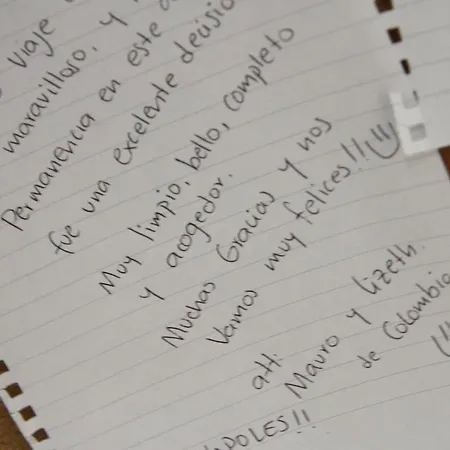 viaje
maravilloso, y
Permanencia en este
fue una excelente decisió
Muy limpio, bello, completo
y acogedor.
Muchas Gracias y nos
Vamos muy felices!!
att.
Mauro y Lizeth.
de Colombia
POLES!!